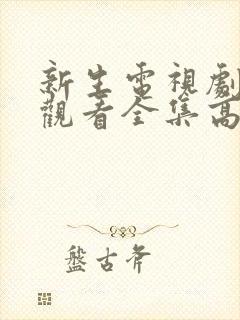 新生電視劇
觀看全集高
盤古斧